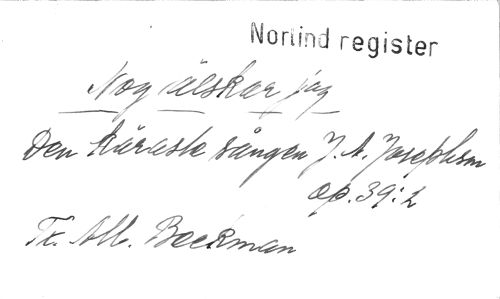 Norlind register
Nog älskar jag
Den käraste sången J. A. Josephson
op. 39:2
Tx. Alb. Boeckman